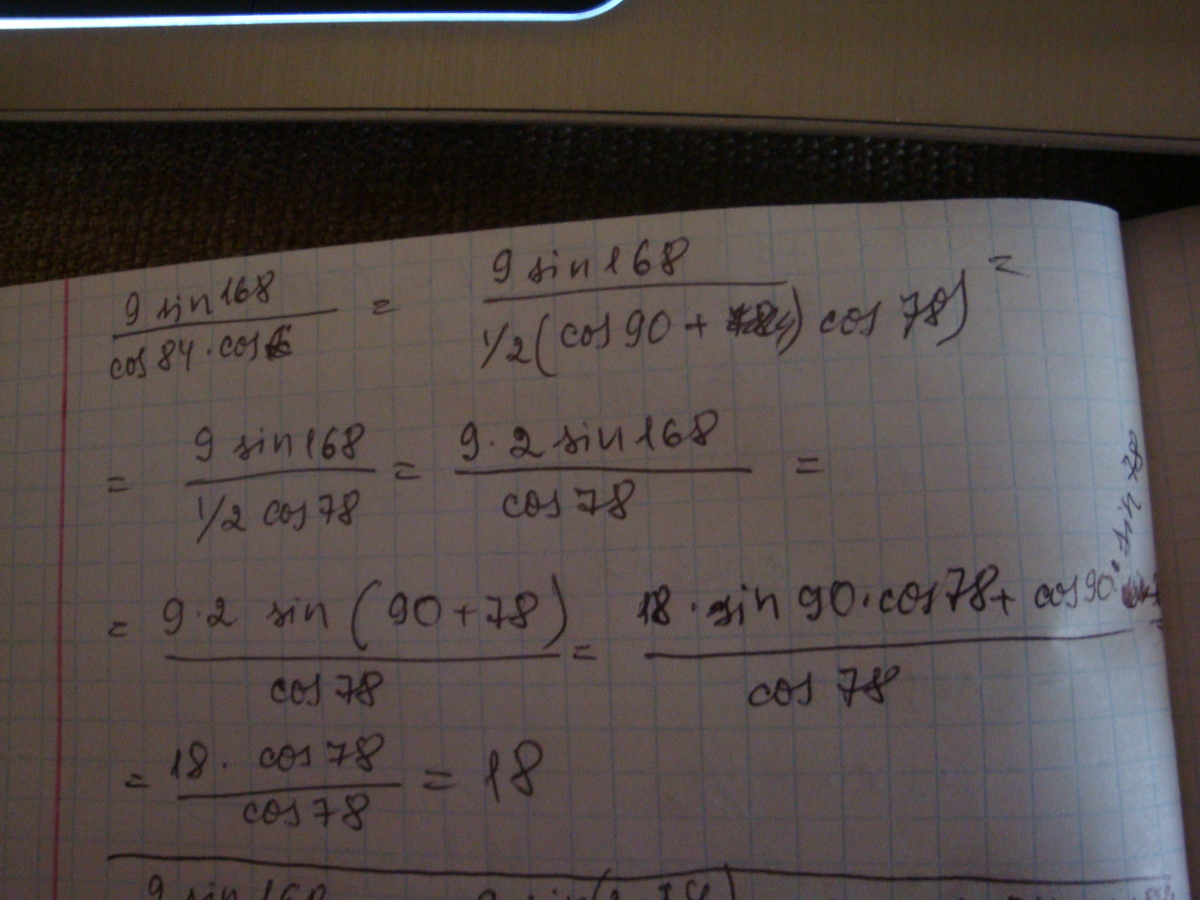 9 sin168 / cos84 · cos6 = 9 sin168 / 1/2(cos90 + cos78) =
= 9 sin168 / 1/2 cos78 = 9 · 2 sin168 / cos78 =
= 9·2 sin(90+78) / cos78 = 18 · sin90·cos78+ cos90· / cos 78
= 18 · cos78 / cos78 = 18
9 sin168